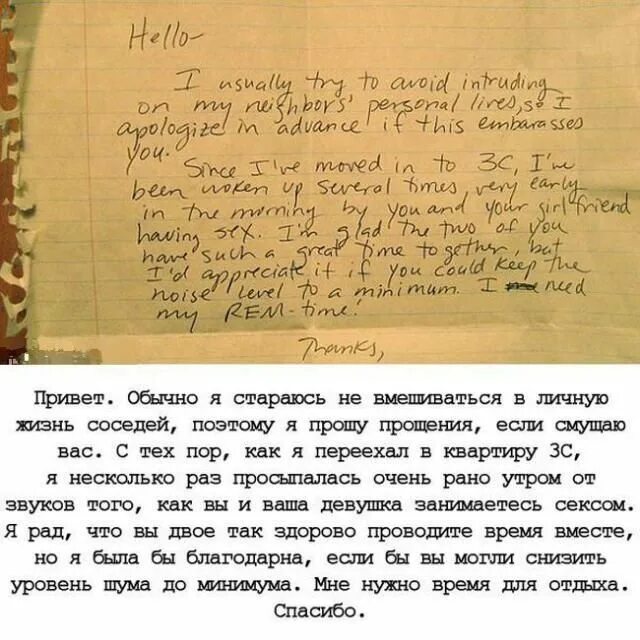 Hello-
I usually try to avoid intruding
on my neighbors' personal lives, so I
apologize in advance if this embarasses
you.
Since I've moved in to 3C, I've
been woken up several times, very early
in the morning by you and your girlfriend
having sex. I'm glad the two of you
have such a great time together, but
I'd appreciate it if you could keep the
noise level to a minimum. I need
my REM-time!
Thanks,
Привет. Обычно я стараюсь не вмешиваться в личную
жизнь соседей, поэтому я прошу прощения, если смущаю
вас. С тех пор, как я переехал в квартиру 3С,
я несколько раз просыпалась очень рано утром от
звуков того, как вы и ваша девушка занимаетесь сексом.
Я рад, что вы двое так здорово проводите время вместе,
но я была бы благодарна, если бы вы могли снизить
уровень шума до минимума. Мне нужно время для отдыха.
Спасибо.